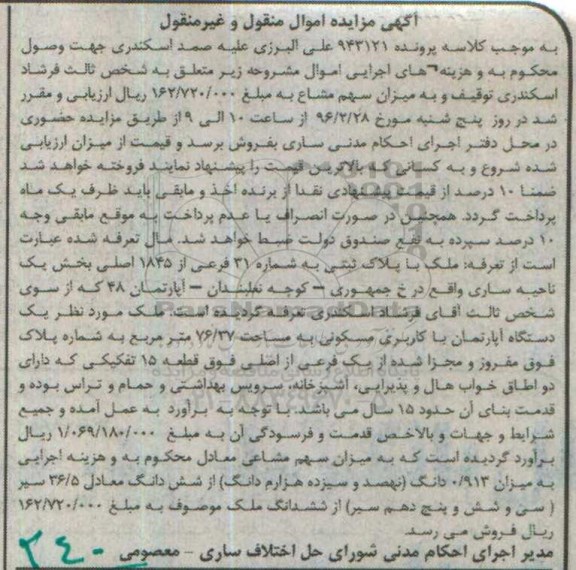 آگهی مزایده اموال منقول و غیرمنقول
به موجب کلاسه پرونده ۹۴۳۱۲۱ علی البرزی علیه صمد اسکندری جهت وصول
محکوم به و هزینه های اجرایی اموال مشروحه زیر متعلق به شخص ثالث فرشاد
اسکندری توقیف و به میزان سهم مشاع به مبلغ ۱۶۲/۷۲۰/۰۰۰ ریال ارزیابی و مقرر
شد در روز پنج شنبه مورخ ۹۶/۲/۲۸ از ساعت ۱۰ الی ۹ از طریق مزایده حضوری
در محل دفتر اجرای احکام مدنی ساری بفروش برسد و قیمت از میزان ارزیابی
شده شروع و به کسانی که بالاترین قیمت را پیشنهاد نمایند فروخته خواهد شد
ضمنا ۱۰ درصد از قیمت پیشنهادی نقدا از برنده اخذ و مابقی باید ظرف یک ماه
پرداخت گردد. همچنین در صورت انصراف یا عدم پرداخت به موقع مابقی وجه
۱۰ درصد سپرده به نفع صندوق دولت ضبط خواهد شد. مال تعرفه شده عبارت
است از تعرفه: ملک با پلاک ثبتی به شماره ۳۱ فرعی از ۱۸۴۵ اصلی بخش یک
ناحیه ساری واقع در خ جمهوری – کوچه نعلبندان – آپارتمان ۴۸ که از سوی
شخص ثالث آقای فرشاد اسکندری تعرفه گردیده است. ملک مورد نظر یک
دستگاه آپارتمان با کاربری مسکونی به مساحت ۷۶/۳۷ متر مربع به شماره پلاک
فوق مفروز و مجزا شده از یک فرعی از اصلی فوق قطعه ۱۵ تفکیکی که دارای
دو اطاق خواب هال و پذیرایی، آشپزخانه، سرویس بهداشتی و حمام و تراس بوده و
قدمت بنای آن حدود ۱۵ سال می باشد. با توجه به برآورد به عمل آمده و جمیع
شرایط و جهات و بالاخص قدمت و فرسودگی آن به مبلغ ۱/۰۶۹/۱۸۰/۰۰۰ ریال
برآورد گردیده است که به میزان سهم مشاعی معادل محکوم به و هزینه اجرایی
به میزان ۰/۹۱۳ دانگ (نهصد و سیزده هزارم دانگ) از شش دانگ معادل ۳۶/۵ سیر
( سی و شش و پنج دهم سیر) از ششدانگ ملک موصوف به مبلغ ۱۶۲/۷۲۰/۰۰۰
ریال فروش می رسد.
مدیر اجرای احکام مدنی شورای حل اختلاف ساری – معصومی
۲۴۰۰